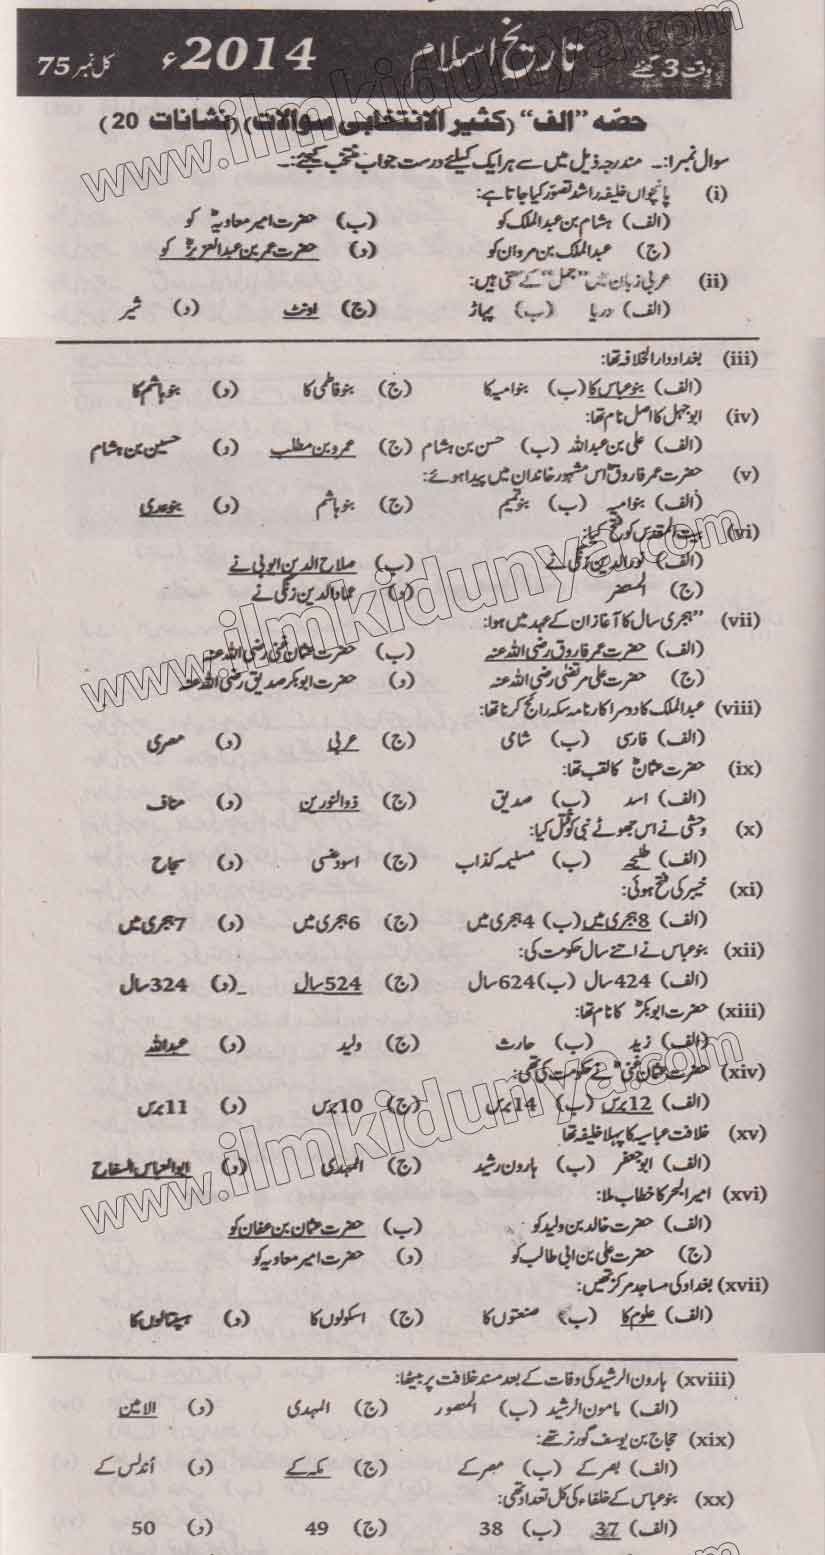 وقت 3 گھنٹے تاریخ اسلام 2014ء کل نمبر 75
حصّہ "الف" (کثیر الانتخابی سوالات) (نشانات 20)
سوال نمبر1:۔ مندرجہ ذیل میں سے ہر ایک کیلئے درست جواب منتخب کیجئے:۔
(i) پانچواں خلیفہ راشد تصوّر کیا جاتا ہے:
(الف) ہشام بن عبدالملک کو (ب) حضرت امیر معاویہؓ کو
(ج) عبدالملک بن مروان کو (د) حضرت عمر بن عبدالعزیزؒ کو
(ii) عربی زبان میں "جمل" کے معنی ہیں:
(الف) دریا (ب) پہاڑ (ج) اونٹ (د) شیر
(iii) بغداد دارالخلافہ تھا:
(الف) بنو عباس کا (ب) بنو امیہ کا (ج) بنو فاطمی کا (د) بنو ہاشم کا
(iv) ابوجہل کا اصل نام تھا:
(الف) علی بن عبداللہ (ب) حسن بن ہشام (ج) عمرو بن مطلب (د) حسین بن ہشام
(v) حضرت عمر فاروقؓ اس مشہور خاندان میں پیدا ہوئے:
(الف) بنو امیہ (ب) بنو تمیم (ج) بنو ہاشم (د) بنو عدی
(vi) بیت المقدس کو فتح کیا:
(الف) نورالدین زنگی نے (ب) صلاح الدین ایوبی نے
(ج) المستنصر (د) عمادالدین زنگی نے
(vii) "ہجری سال کا آغاز ان کے عہد میں ہوا:
(الف) حضرت عمر فاروق رضی اللہ عنہ (ب) حضرت عثمان غنی رضی اللہ عنہ
(ج) حضرت علی مرتضٰی رضی اللہ عنہ (د) حضرت ابوبکر صدیق رضی اللہ عنہ
(viii) عبدالملک کا دوسرا کارنامہ سکہ رائج کرنا تھا:
(الف) فارسی (ب) شامی (ج) عربی (د) مصری
(ix) حضرت عثمانؓ کا لقب تھا:
(الف) اسد (ب) صدیق (ج) ذوالنورین (د) مناف
(x) وحشی نے اس جھوٹے نبی کو قتل کیا:
(الف) طلیحہ (ب) مسلیمہ کذاب (ج) اسود عنسی (د) سجاح
(xi) خیبر کی فتح ہوئی:
(الف) 8 ہجری میں (ب) 4 ہجری میں (ج) 6 ہجری میں (د) 7 ہجری میں
(xii) بنو عباس نے اتنے سال حکومت کی:
(الف) 424 سال (ب) 624 سال (ج) 524 سال (د) 324 سال
(xiii) حضرت ابوبکرؓ کا نام تھا:
(الف) زید (ب) حارث (ج) ولید (د) عبداللہ
(xiv) حضرت عثمان غنیؓ نے حکومت کی تھی:
(الف) 12 برس (ب) 14 برس (ج) 10 برس (د) 11 برس
(xv) خلافت عباسیہ کا پہلا خلیفہ تھا
(الف) ابو جعفر (ب) ہارون رشید (ج) المہدی (د) ابوالعباس السفاح
(xvi) امیر البحر کا خطاب ملا:
(الف) حضرت خالد بن ولید کو (ب) حضرت عثمان بن عفان کو
(ج) حضرت علی بن ابی طالب کو (د) حضرت امیر معاویہ کو
(xvii) بغداد کی مساجد مرکز تھیں:
(الف) علوم کا (ب) صنعتوں کا (ج) اسکولوں کا (د) ہسپتالوں کا
(xviii) ہارون الرشید کی وفات کے بعد مسند خلافت پر بیٹھا:
(الف) مامون الرشید (ب) المنصور (ج) المہدی (د) الامین
(xix) حجاج بن یوسف گورنر تھے:
(الف) بصر کے (ب) مصر کے (ج) مکہ کے (د) اُندلس کے
(xx) بنو عباس کے خلفاء کی کل تعداد تھی:
(الف) 37 (ب) 38 (ج) 49 (د) 50
www.ilmkidunya.com
www.ilmkidunya.com
www.ilmkidunya.com